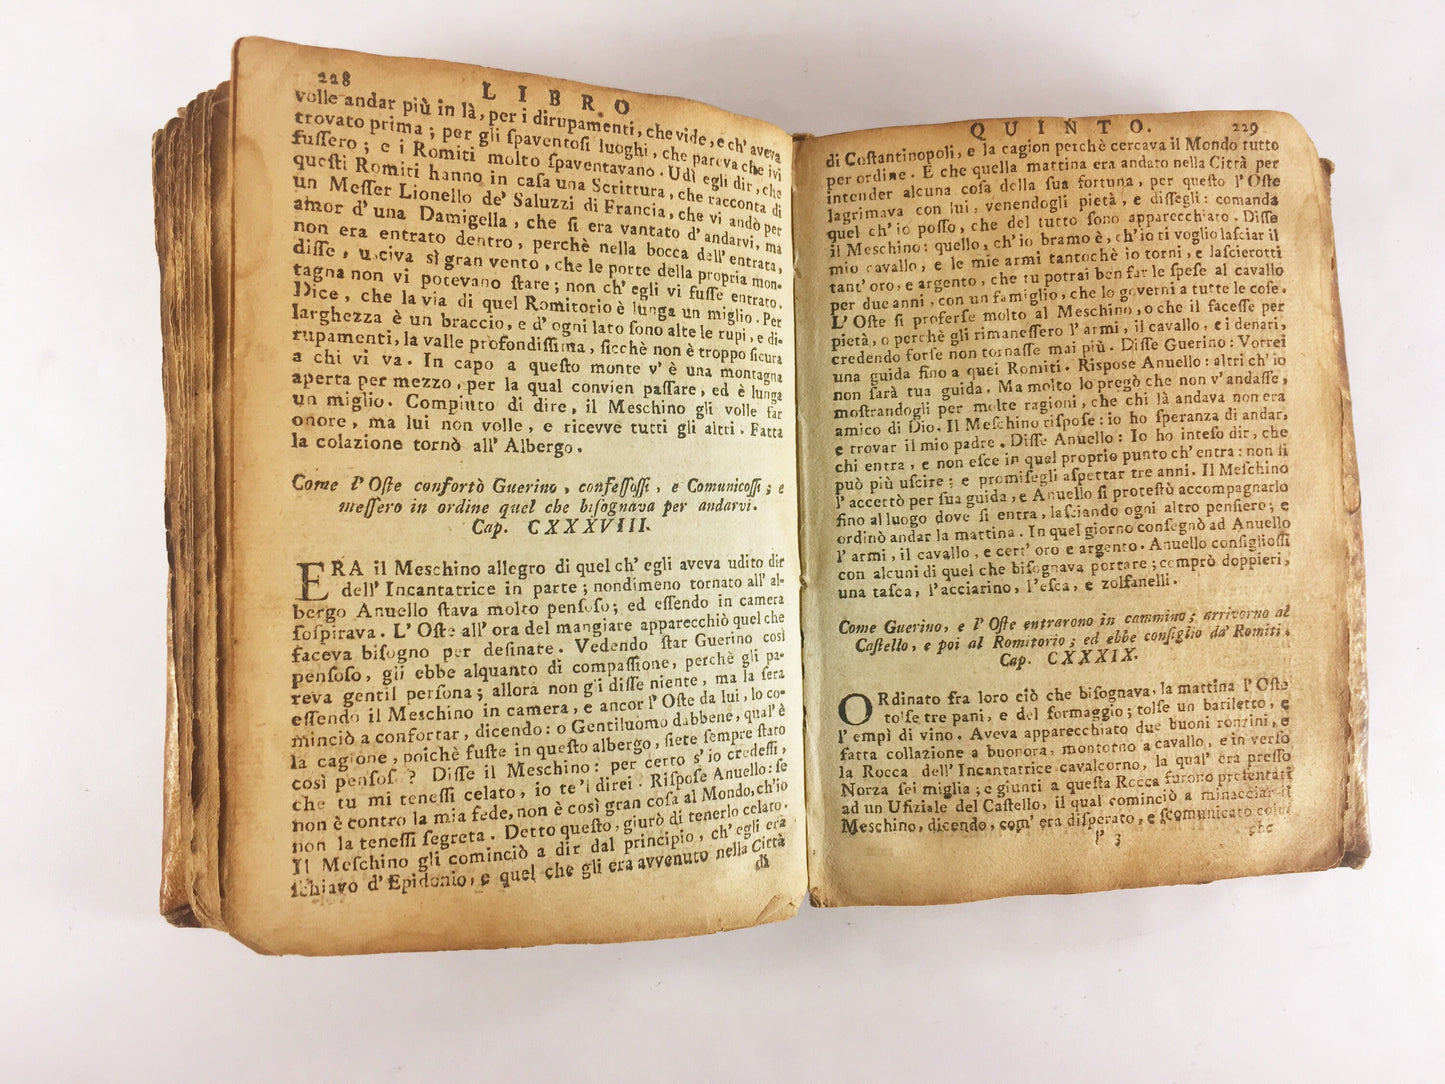 228
LIBRO
volle andar più in là, per i dirupamenti, che vide, e ch' aveva
trovato prima; per gli ſpaventoſi luoghi, che pareva che ivi
fuſſero; e i Romiti molto ſpaventavano. Udì egli dir, che
queſti Romiti hanno in caſa una Scrittura, che racconta di
un Meſſer Lionello de' Saluzzi di Francia, che vi andò per
amor d' una Damigella, che ſi era vantato d' andarvi, ma
non era entrato dentro, perchè nella bocca dell' entrata,
diſſe, uſciva sì gran vento, che le porte della propria mon-
tagna non vi potevano ſtare; non ch' egli vi fuſſe entrato.
Dice, che la via di quel Romitorio è lunga un miglio. Per
larghezza è un braccio, e d' ogni lato ſono alte le rupi, e di-
rupamenti, la valle profondiſſima, ſicchè non è troppo ſicura
a chi vi va. In capo a queſto monte v' è una montagna
aperta per mezzo, per la qual convien paſſare, ed è lunga
un miglio. Compiuto di dire, il Meſchino gli volle far
onore, ma lui non volle, e ricevve tutti gli altri. Fatta
la colazione tornò all' Albergo.
Come l' Oſte confortò Guerino, confeſſoſſi, e Comunicoſſi; e
meſſero in ordine quel che biſognava per andarvi.
Cap. CXXXVIII.
ERA il Meſchino allegro di quel ch' egli aveva udito dir
dell' Incantatrice in parte; nondimeno tornato all' al-
bergo Anuello ſtava molto penſoſo; ed eſſendo in camera
ſoſpirava. L' Oſte all' ora del mangiare apparecchiò quel che
faceva biſogno per deſinate. Vedendo ſtar Guerino così
penſoſo, gli ebbe alquanto di compaſſione, perchè gli pa-
reva gentil perſona; allora non gli diſſe niente, ma la ſera
eſſendo il Meſchino in camera, e ancor l' Oſte da lui, lo co-
minciò a confortar, dicendo: o Gentiluomo dabbene, qual' è
la cagione, poichè fuſte in queſto albergo, ſiete ſempre ſtato
così penſoſo? Diſſe il Meſchino: per certo s' io credeſſi,
che tu mi teneſſi celato, io te 'l direi. Riſpoſe Anuello: ſe
non è contro la mia fede, non è così gran coſa al Mondo, ch' io
non la teneſſi ſegreta. Detto queſto, giurò di tenerlo celato.
Il Meſchino gli cominciò a dir dal principio, ch' egli era
ſchiavo d' Epidonio, e quel che gli era avvenuto nella Città
di
QUINTO.
229
di Coſtantinopoli, e la cagion perchè cercava il Mondo tutto
per ordine. E che quella mattina era andato nella Città per
intender alcuna coſa della ſua fortuna, per queſto l' Oſte
lagrimava con lui, venendogli pietà, e diſſegli: comanda
quel ch' io poſſo, che del tutto ſono apparecchiato. Diſſe
il Meſchino: quello, ch' io bramo è, ch' io ti voglio laſciar il
mio cavallo, e le mie armi tantochè io torni, e laſcierotti
tant' oro, e argento, che tu potrai ben far le ſpeſe al cavallo
per due anni, con un famiglio, che lo governi a tutte le coſe.
L' Oſte ſi proferſe molto al Meſchino, o che il faceſſe per
pietà, o perchè gli rimaneſſero l' armi, il cavallo, e i denari,
credendo forſe non tornaſſe mai più. Diſſe Guerino: Vorrei
una guida fino a quei Romiti. Riſpoſe Anuello: altri ch' io
non ſarà tua guida. Ma molto lo pregò che non v' andaſſe,
moſtrandogli per molte ragioni, che chi là andava non era
amico di Dio. Il Meſchino riſpoſe: io ho ſperanza di andar,
e trovar il mio padre. Diſſe Anuello: Io ho inteſo dir, che
chi entra, e non eſce in quel proprio punto ch' entra: non ſi
può più uſcire; e promiſegli aſpettar tre anni. Il Meſchino
l' accettò per ſua guida, e Anuello ſi proteſtò accompagnarlo
fino al luogo dove ſi entra, laſciando ogni altro penſiero; e
ordinò andar la mattina. In quel giorno conſegnò ad Anuello
l' armi, il cavallo, e cert' oro e argento. Anuello conſiglioſſi
con alcuni di quel che biſognava portare; comprò doppieri,
una taſca, l' acciarino, l' eſca, e zolfanelli.
Come Guerino, e l' Oſte entrarono in cammino; arrivorno al
Caſtello, e poi al Romitorio; ed ebbe conſiglio da' Romiti.
Cap. CXXXIX.
ORdinato fra loro ciò che biſognava, la mattina l' Oſte
tolſe tre pani, e del formaggio; tolſe un bariletto, e
l' empì di vino. Aveva apparecchiato due buoni ronzini, e
fatta collazione a buonora, montorno a cavallo, e in verſo
la Rocca dell' Incantatrice cavalcorno, la qual' era preſſo
Norza ſei miglia; e giunti a queſta Rocca furono preſentati
ad un Ufiziale del Caſtello, il qual cominciò a minacciar il
Meſchino, dicendo, com' era diſperato, e ſcomunicato colui
P 3
che